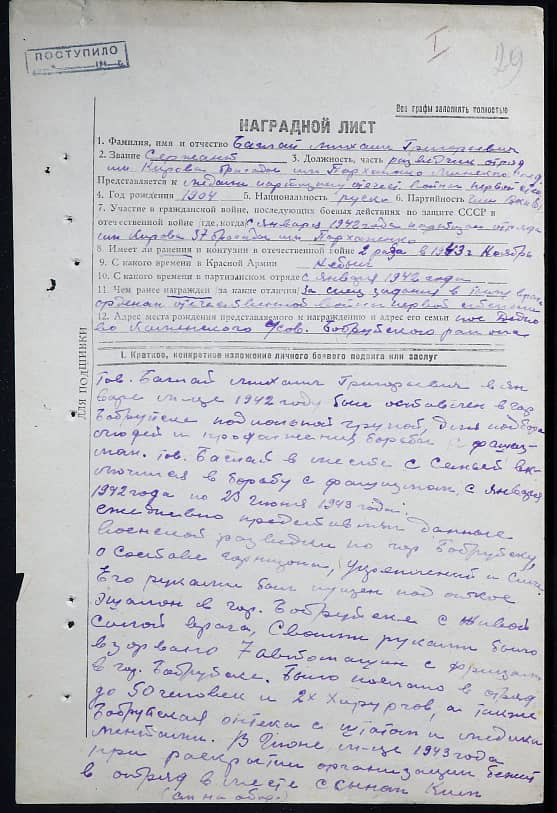 ПОСТУПИЛО
I
29
Все графы заполнять полностью
НАГРАДНОЙ ЛИСТ
1. Фамилия, имя и отчество Баглай Михаил Григорьевич
2. Звание Сержант 3. Должность, часть разведчик отряд
им Кирова бригады им Пархоменко Минского
Представляется к медали партизану отечеств войны первой степ
4. Год рождения 1904 5. Национальность руский 6. Партийность член ВКП(б)
7. Участие в гражданской войне, последующих боевых действиях по защите СССР в
отечественной войне (где, когда) с января 1942 года партизан отряда
им Кирова 37 бригада им Пархоменко
8. Имеет ли ранения и контузии в отечественной войне 2 раза в 1943 г Ноябрь
9. С какого времени в Красной Армии не был
10. С какого времени в партизанском отряде с января 1942 года
11. Чем ранее награжден (за какие отличия) За спец задания в тылу врага
орденом отечественной войны первой степени
12. Адрес места рождения представляемого к награждению и адрес его семьи пос
Бобруйского района
ДЛЯ ПОДШИВКИ
I. Краткое, конкретное изложение личного боевого подвига или заслуг
Тов. Баглай Михаил Григорьевич в ян
варе м-це 1942 году был оставлен в гор
Бобруйске подпольной групой, для подбора
людей и продолжения борьбы с фашиз
мом. тов. Баглай в месте с Семьей вк-
лючился в борьбу с фашизмом, с января
1942 года по 23 июня 1943 года.
ежедневно представлял данные
военной разведки по гор Бобруйску,
о составе гарнизона, укреплений и
Его руками был пущен под откос
Эшалон в гор. Бобруйске с живой
силой врага, Своими руками было
взорвано 7 автомашин с фрицами
в гор. Бобруйске. Было послано в отряд
до 50 человек и 2х хирургов, а также
Бобруйская аптека с штатом и медика
ментами. В Июне м-це 1943 года
при раскрытии организации бежит
в отряд в месте с сыном Ким
(см на обор.)